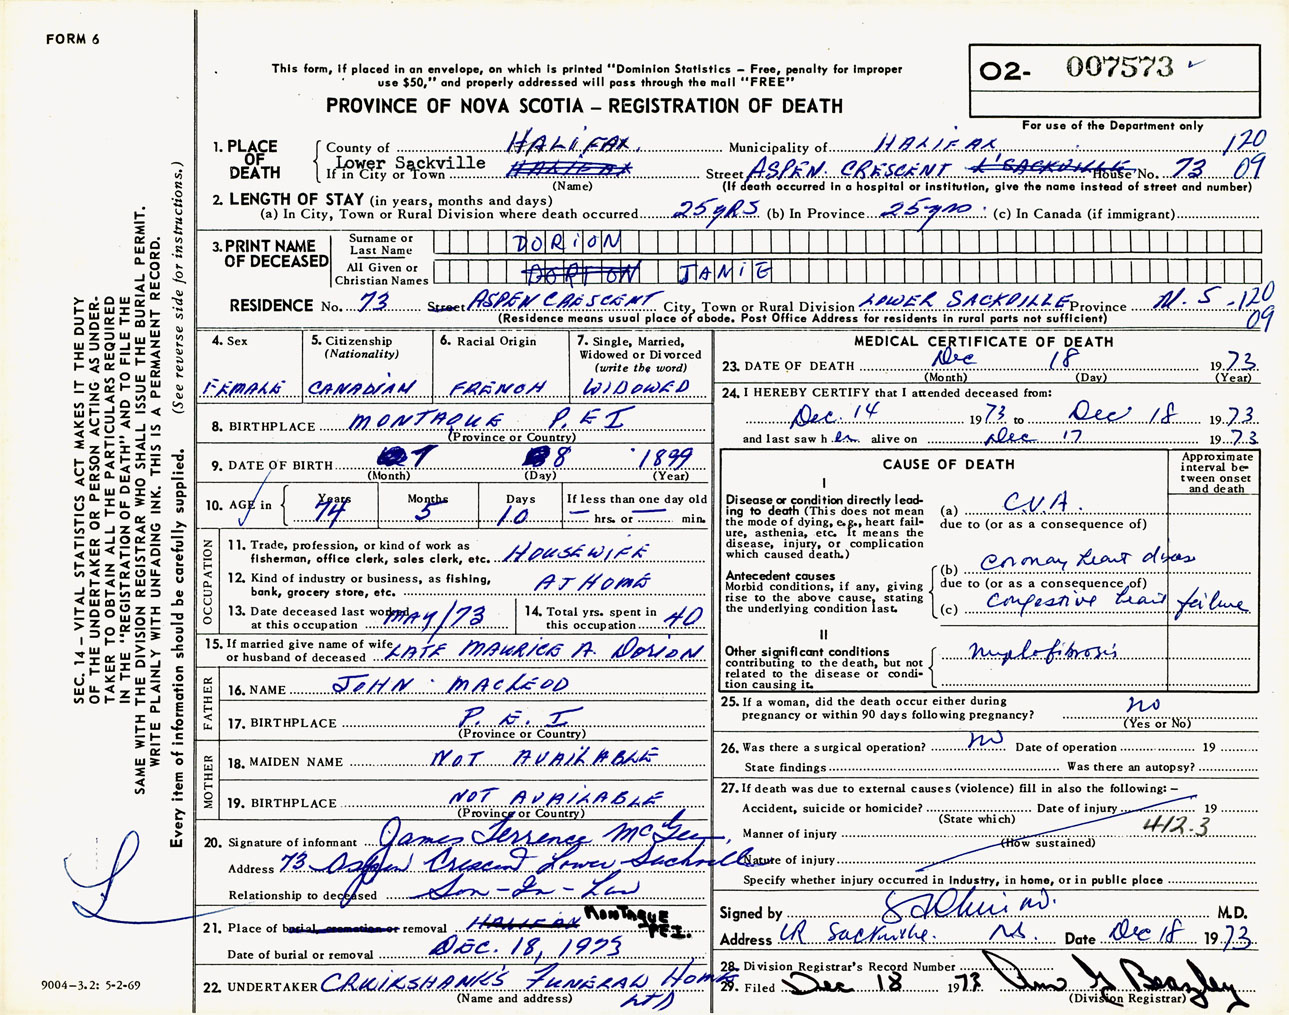 FORM 6
This form, if placed in an envelope, on which is printed "Dominion Statistics – Free, penalty for improper
use $50," and properly addressed will pass through the mail "FREE"
PROVINCE OF NOVA SCOTIA – REGISTRATION OF DEATH
02- 007573
For use of the Department only
1. PLACE OF DEATH
County of HALIFAX Municipality of HALIFAX 120
Lower Sackville
If in City or Town HALIFAX Street ASPEN CRESCENT L'SACKVILLE House No. 73 09
(Name) (If death occurred in a hospital or institution, give the name instead of street and number)
2. LENGTH OF STAY (in years, months and days)
(a) In City, Town or Rural Division where death occurred 25 yRS (b) In Province 25 yrs. (c) In Canada (if immigrant)
3. PRINT NAME OF DECEASED
Surname or Last Name DORION
All Given or Christian Names DORION JANIE
RESIDENCE No. 73 Street ASPEN CRESCENT City, Town or Rural Division LOWER SACKVILLE Province N.S. 120
(Residence means usual place of abode. Post Office Address for residents in rural parts not sufficient) 09
4. Sex FEMALE
5. Citizenship (Nationality) CANADIAN
6. Racial Origin FRENCH
7. Single, Married, Widowed or Divorced (write the word) WIDOWED
8. BIRTHPLACE MONTAQUE P.E.I
(Province or Country)
9. DATE OF BIRTH 7 8 1899
(Month) (Day) (Year)
10. AGE in Years 74 Months 5 Days 10 If less than one day old — hrs. or — min.
OCCUPATION
11. Trade, profession, or kind of work as fisherman, office clerk, sales clerk, etc. HOUSEWIFE
12. Kind of industry or business, as fishing, bank, grocery store, etc. AT HOME
13. Date deceased last worked at this occupation MAY/73
14. Total yrs. spent in this occupation 40
15. If married give name of wife or husband of deceased LATE MAURICE A. DORION
FATHER
16. NAME JOHN MACLEOD
17. BIRTHPLACE P.E.I
(Province or Country)
MOTHER
18. MAIDEN NAME NOT AVAILABLE
19. BIRTHPLACE NOT AVAILABLE
(Province or Country)
20. Signature of informant James Terrence McGee
Address 73 Aspen Crescent Lower Sackville
Relationship to deceased Son-In-Law
21. Place of burial, cremation or removal HALIFAX MONTAQUE P.E.I.
Date of burial or removal DEC. 18, 1973
22. UNDERTAKER CRUIKSHANK'S FUNERAL HOME LTD
(Name and address)
MEDICAL CERTIFICATE OF DEATH
23. DATE OF DEATH Dec 18 1973
(Month) (Day) (Year)
24. I HEREBY CERTIFY that I attended deceased from:
Dec. 14 1973 to Dec 18 1973
and last saw her alive on Dec 17 1973
CAUSE OF DEATH
Approximate interval between onset and death
I
Disease or condition directly leading to death (This does not mean the mode of dying, e.g., heart failure, asthenia, etc. It means the disease, injury, or complication which caused death.)
(a) C.V.A.
due to (or as a consequence of)
Antecedent causes
Morbid conditions, if any, giving rise to the above cause, stating the underlying condition last.
(b) coronary heart disease
due to (or as a consequence of)
(c) congestive heart failure
II
Other significant conditions contributing to the death, but not related to the disease or condition causing it.
25. If a woman, did the death occur either during pregnancy or within 90 days following pregnancy? no
(Yes or No)
26. Was there a surgical operation? no Date of operation 19
State findings Was there an autopsy?
27. If death was due to external causes (violence) fill in also the following: –
Accident, suicide or homicide? Date of injury 19
(State which)
Manner of injury 412.3
(How sustained)
Nature of injury
Specify whether injury occurred in industry, in home, or in public place
Signed by M.D.
Address LR Sackville. N.S. Date Dec 18 1973
28. Division Registrar's Record Number
29. Filed Dec 18 1973 Ann G Beazley
(Division Registrar)
SEC. 14 – VITAL STATISTICS ACT MAKES IT THE DUTY
OF THE UNDERTAKER OR PERSON ACTING AS UNDER-
TAKER TO OBTAIN ALL THE PARTICULARS REQUIRED
IN THE "REGISTRATION OF DEATH" AND TO FILE THE
SAME WITH THE DIVISION REGISTRAR WHO SHALL ISSUE THE BURIAL PERMIT.
WRITE PLAINLY WITH UNFADING INK. THIS IS A PERMANENT RECORD.
Every item of information should be carefully supplied. (See reverse side for instructions.)
9004–3.2: 5-2-69